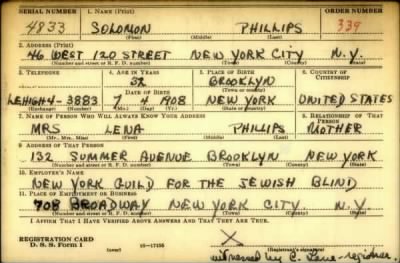 SERIAL NUMBER 1. NAME (Print) ORDER NUMBER
4833 SOLOMON PHILLIPS 339
(First) (Middle) (Last)
2. ADDRESS (Print)
46 WEST 120 STREET NEW YORK CITY N.Y.
(Number and street or R. F. D. number) (Town) (County) (State)
3. TELEPHONE 4. AGE IN YEARS 5. PLACE OF BIRTH 6. COUNTRY OF CITIZENSHIP
32 BROOKLYN
DATE OF BIRTH (Town or county)
LEHIGH4-3883 7 4 1908 NEW YORK UNITED STATES
(Exchange) (Number) (Mo.) (Day) (Yr.) (State or country)
7. NAME OF PERSON WHO WILL ALWAYS KNOW YOUR ADDRESS 8. RELATIONSHIP OF THAT PERSON
MRS LENA PHILLIPS MOTHER
(Mr., Mrs., Miss) (First) (Middle) (Last)
9. ADDRESS OF THAT PERSON
132 SUMNER AVENUE BROOKLYN NEW YORK
(Number and street or R. F. D. number) (Town) (County) (State)
10. EMPLOYER'S NAME
NEW YORK GUILD FOR THE JEWISH BLIND
11. PLACE OF EMPLOYMENT OR BUSINESS
708 BROADWAY NEW YORK CITY N.Y.
(Number and street or R. F. D. number) (Town) (County) (State)
I AFFIRM THAT I HAVE VERIFIED ABOVE ANSWERS AND THAT THEY ARE TRUE.
REGISTRATION CARD X
D. S. S. Form 1 (over) 16-17105 (Registrant's signature)
witnessed by C. - registrar.